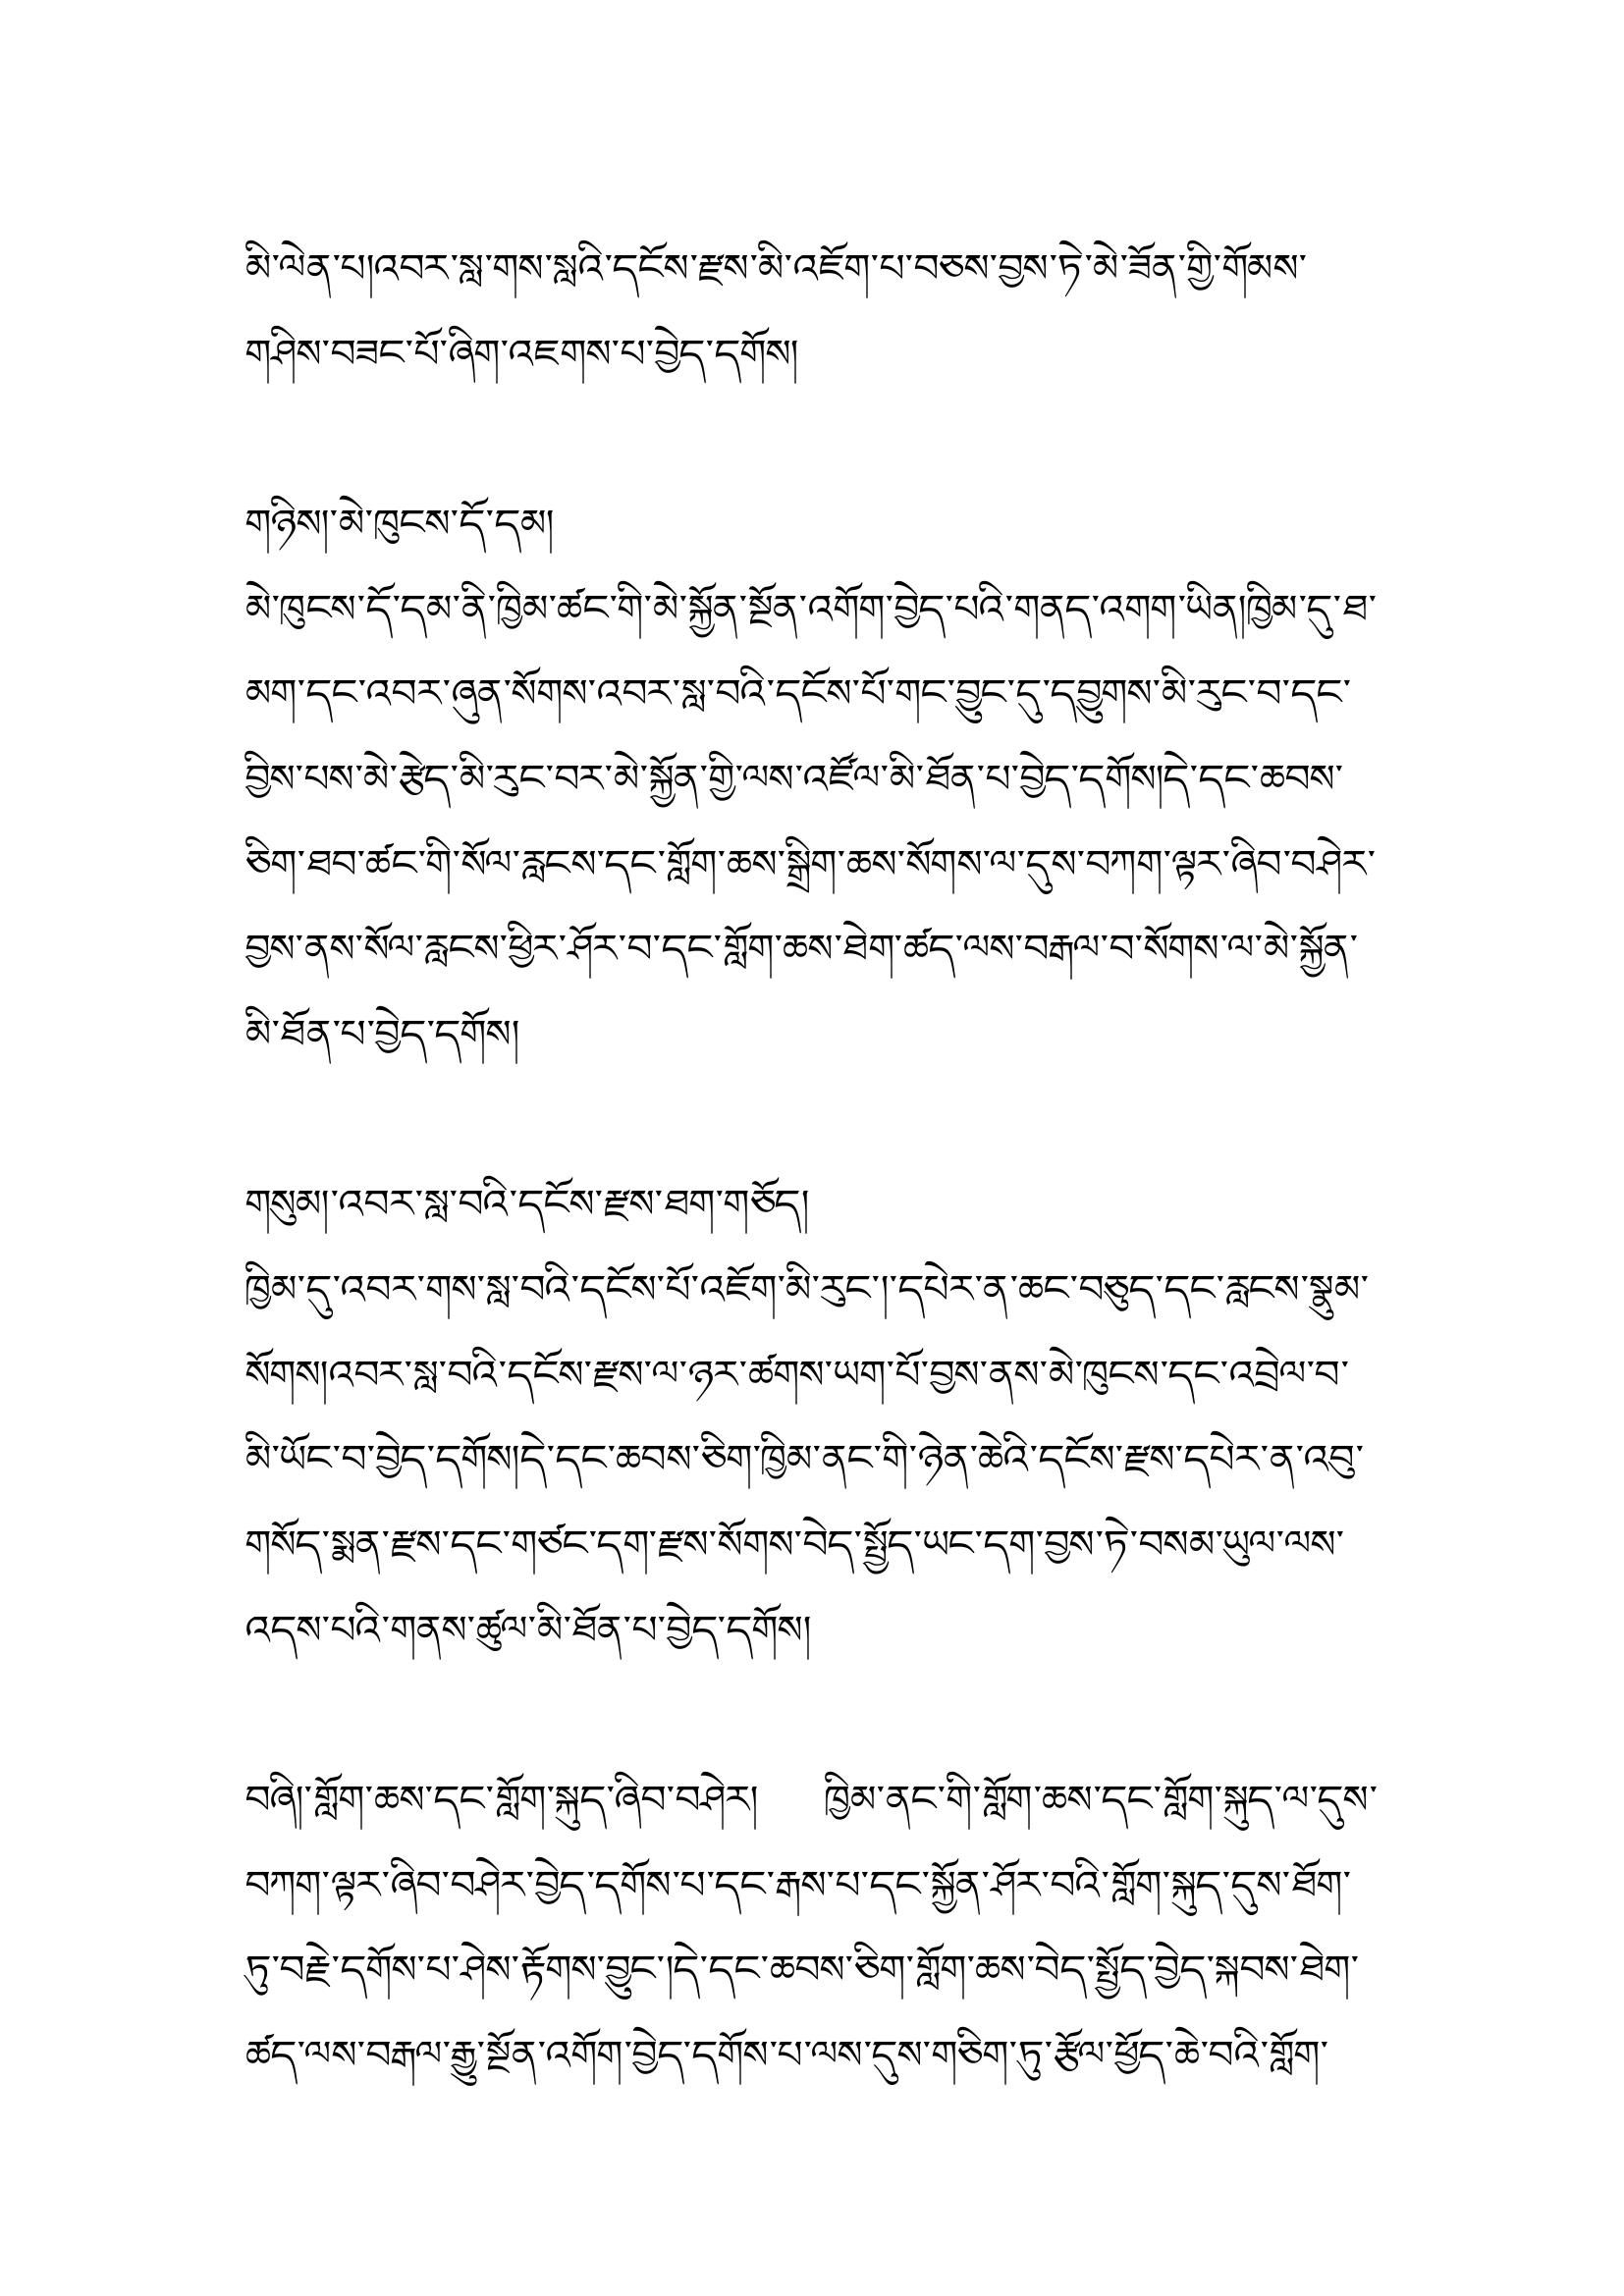 མི་ལེན་པ།འབར་སླ་གས་སླའི་དངོས་རྫས་མི་འཇོག་པ་བཅས་བྱས་ཏེ་མེ་ཟོན་གྱི་གོམས་
གཤིས་བཟང་པོ་ཞིག་འཇགས་པ་བྱེད་དགོས།
གཉིས།་མེ་ཁུངས་དོ་དམ།
མེ་ཁུངས་དོ་དམ་ནི་ཁྱིམ་ཚང་གི་མེ་སྐྱོན་སྔོན་འགོག་བྱེད་པའི་གནད་འགག་ཡིན།ཁྱིམ་དུ་ཐ་
མག་དང་འབར་ཞུན་སོགས་འབར་སླ་བའི་དངོས་པོ་གང་བྱུང་དུ་དབྱུགས་མི་རུང་བ་དང་
བྱིས་པས་མེ་རྩེད་མི་རུང་བར་མེ་སྐྱོན་གྱི་ལས་འཛོལ་མི་ཐོན་པ་བྱེད་དགོས།དེ་དང་ཆབས་
ཅིག་ཐབ་ཚང་གི་སོལ་རླངས་དང་གློག་ཆས་སྒྲིག་ཆས་སོགས་ལ་དུས་བཀག་ལྟར་ཞིབ་བཤེར་
བྱས་ནས་སོལ་རླངས་ཕྱིར་ཤོར་བ་དང་གློག་ཆས་ཐེག་ཚད་ལས་བརྒལ་བ་སོགས་ལ་མེ་སྐྱོན་
མི་ཐོན་པ་བྱེད་དགོས།
གསུམ།་འབར་སླ་བའི་དངོས་རྫས་ཐག་གཅོད།
ཁྱིམ་དུ་འབར་གས་སླ་བའི་དངོས་པོ་འཇོག་མི་རུང་།་དཔེར་ན་ཆང་བཅུད་དང་རླངས་སྣུམ་
སོགས།འབར་སླ་བའི་དངོས་རྫས་ལ་ཉར་ཚགས་ཡག་པོ་བྱས་ནས་མེ་ཁུངས་དང་འབྲེལ་བ་
མི་ཡོང་བ་བྱེད་དགོས།དེ་དང་ཆབས་ཅིག་ཁྱིམ་ནང་གི་ཉེན་ཆེའི་དངོས་རྫས་དཔེར་ན་འབུ་
གསོད་སྨན་རྫས་དང་གཙང་དག་རྫས་སོགས་བེད་སྤྱོད་ཡང་དག་བྱས་ཏེ་བསམ་ཡུལ་ལས་
འདས་པའི་གནས་ཚུལ་མི་ཐོན་པ་བྱེད་དགོས།
བཞི།་གློག་ཆས་དང་གློག་སྐུད་ཞིབ་བཤེར།   ཁྱིམ་ནང་གི་གློག་ཆས་དང་གློག་སྐུད་ལ་དུས་
བཀག་ལྟར་ཞིབ་བཤེར་བྱེད་དགོས་པ་དང་རྒས་པ་དང་སྐྱོན་ཤོར་བའི་གློག་སྐུད་དུས་ཐོག་
ཏུ་བརྗེ་དགོས་པ་ཤེས་རྟོགས་བྱུང་།དེ་དང་ཆབས་ཅིག་གློག་ཆས་བེད་སྤྱོད་བྱེད་སྐབས་ཐེག་
ཚད་ལས་བརྒལ་རྒྱུ་སྔོན་འགོག་བྱེད་དགོས་པ་ལས་དུས་གཅིག་ཏུ་རྩོལ་ཕྱོད་ཆེ་བའི་གློག་